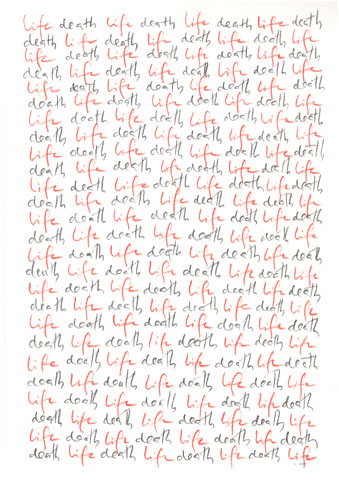 Life death Life death Life death Life death
death Life death Life death Life death Life
Life death Life death Life death Life death
death Life death Life death Life death Life
Life death Life death Life death Life death
death Life death Life death Life death Life
Life death Life death Life death Life death
death Life death Life death Life death Life
Life death Life death Life death Life death
death Life death Life death Life death Life
Life death Life death Life death Life death
death Life death Life death Life death Life
Life death Life death Life death Life death
death Life death Life death Life death Life
Life death Life death Life death Life death
death Life death Life death Life death Life
Life death Life death Life death Life death
death Life death Life death Life death Life
Life death Life death Life death Life death
death Life death Life death Life death Life
Life death Life death Life death Life death
death Life death Life death Life death Life
Life death Life death Life death Life death
death Life death Life death Life death Life
Life death Life death Life death Life death
death Life death Life death Life death Life